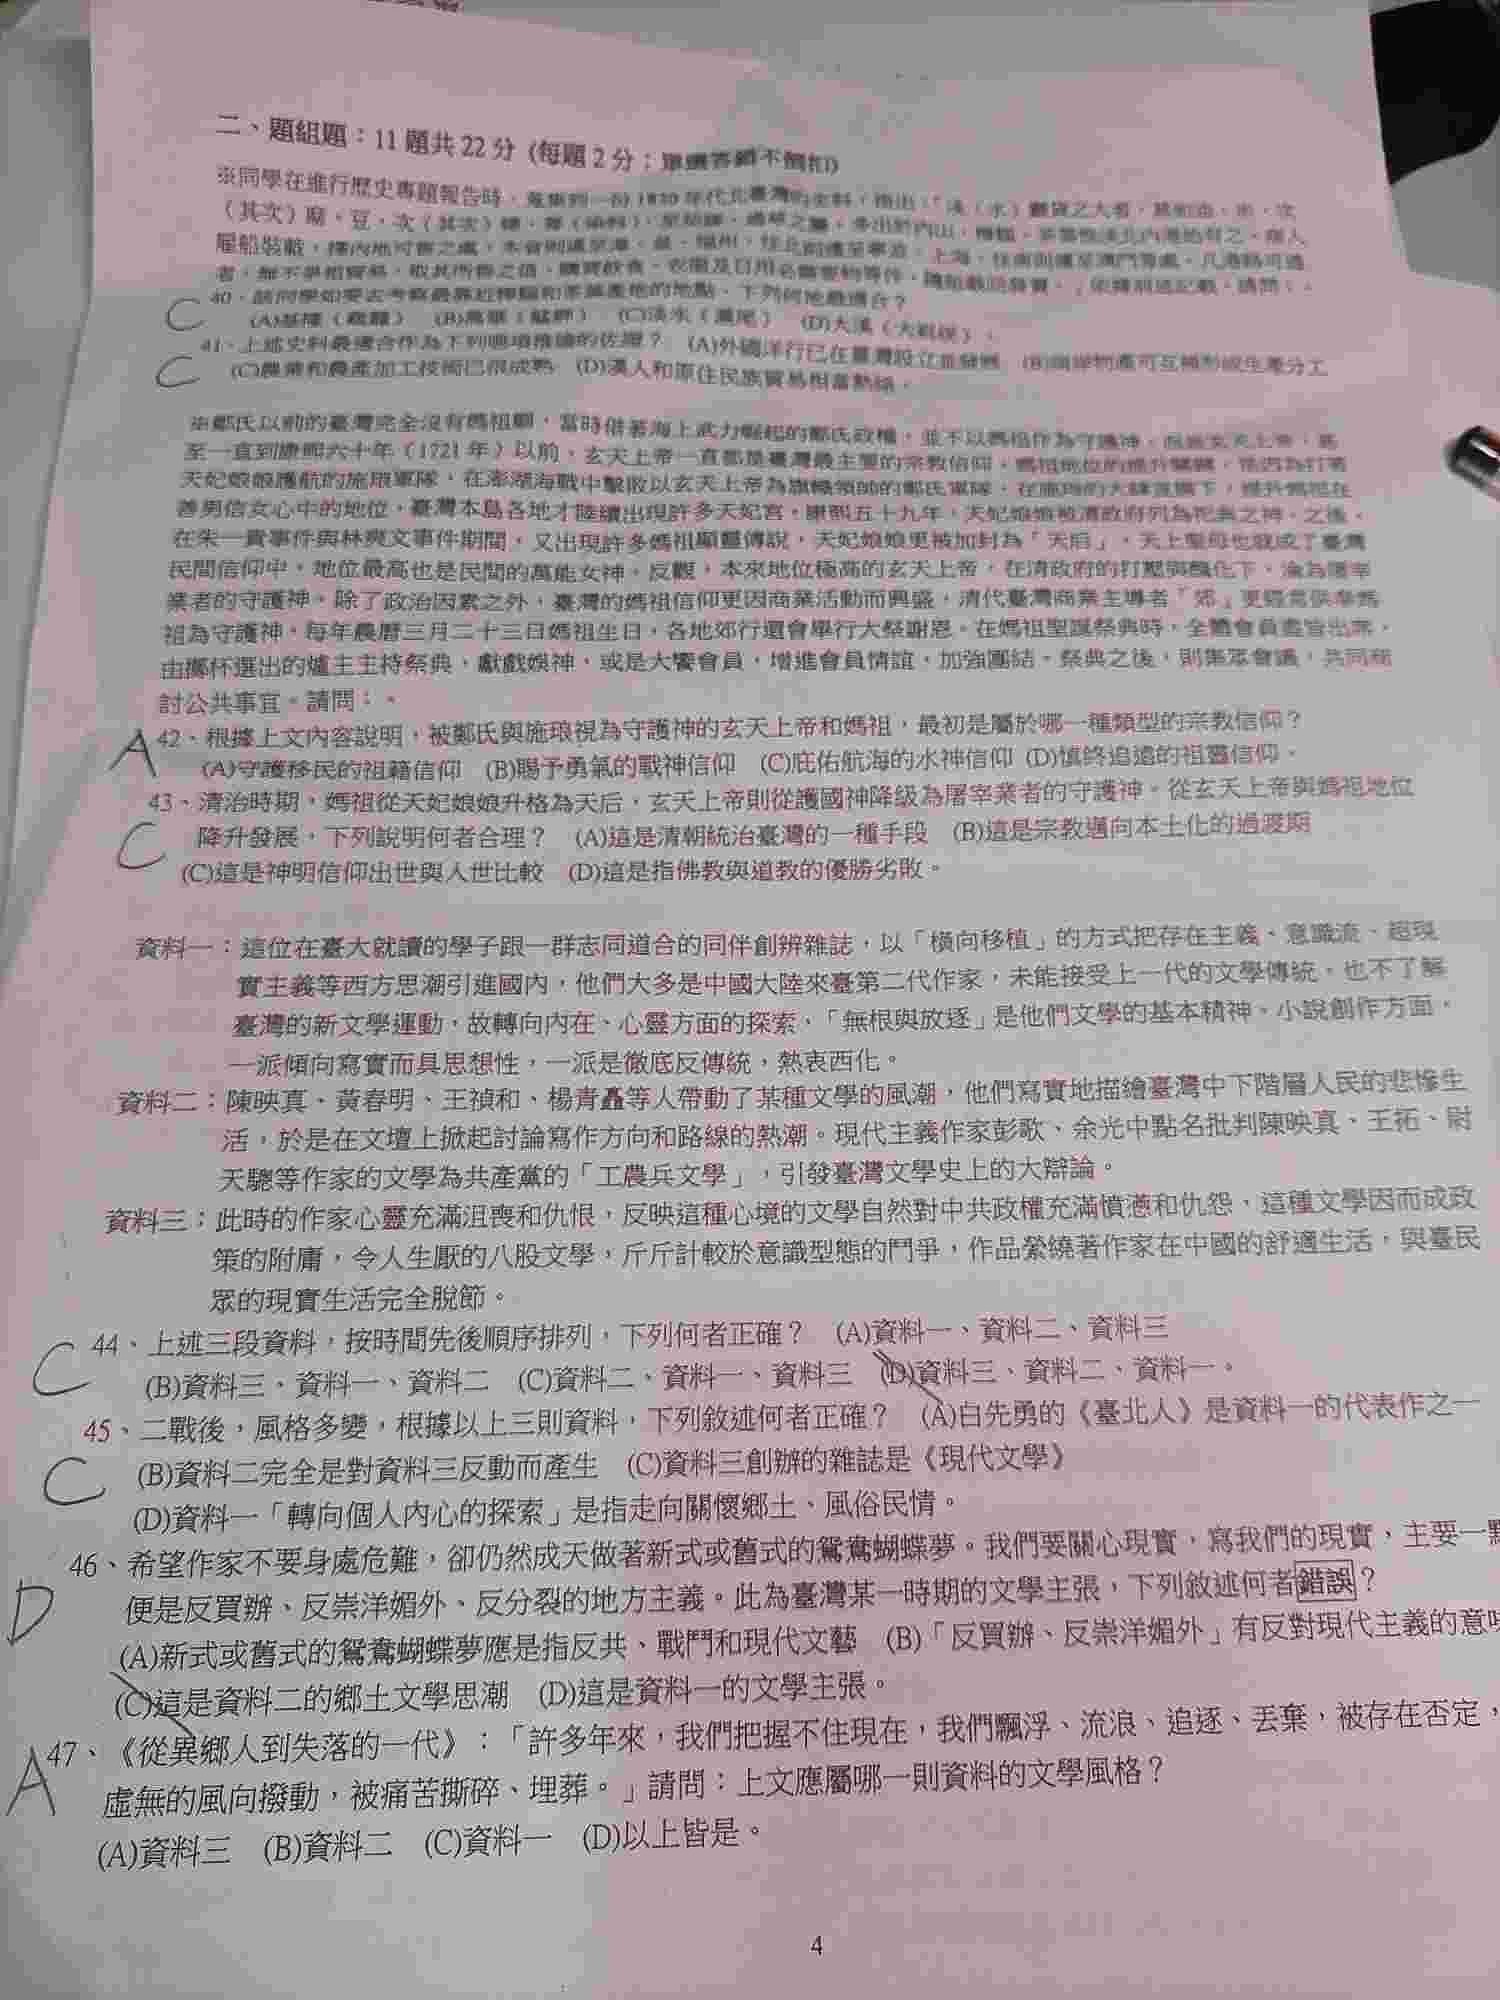 二、題組題：11 題共 22 分 (每題 2 分；單選答錯不倒扣)
※同學在進行歷史專題報告時，蒐集到一份 1830 年代北臺灣的史料，指出：「淡（水）
（其次）
雇船裝載，
者，無不爭相貿易，
C 40、該同學如要去考察最靠近樟腦和茶葉產地的地點，下列何地最適合？
(A)基隆（雞籠） (B)萬華（艋舺） (C)淡水（滬尾） (D)大溪（大嵙崁）。
C 41、上述史料最適合作為下列哪項推論的佐證？ (A)外國洋行已在臺灣設立並發展 (B)兩岸物產可互補形成生產分工
(C)農業和農產加工技術已很成熟 (D)漢人和原住民族貿易相當熱絡。
※鄭氏以前的臺灣完全沒有媽祖廟，當時借著海上武力崛起的鄭氏政權，並不以媽祖作為守護神，而是玄天上帝，甚
至一直到康熙六十年（1721 年）以前，玄天上帝一直都是臺灣最主要的宗教信仰。媽祖地位的提升關鍵，是因為打著
天妃娘娘護航的施琅軍隊，在澎湖海戰中擊敗以玄天上帝為旗幟領師的鄭氏軍隊。在施琅的大肆宣揚下，提升媽祖在
善男信女心中的地位，臺灣本島各地才陸續出現許多天妃宮。康熙五十九年，天妃娘娘被清政府列為祀典之神。之後，
在朱一貴事件與林爽文事件期間，又出現許多媽祖顯靈傳說，天妃娘娘更被加封為「天后」，天上聖母也就成了臺灣
民間信仰中，地位最高也是民間的萬能女神。反觀，本來地位極高的玄天上帝，在清政府的打壓與醜化下，淪為屠宰
業者的守護神。除了政治因素之外，臺灣的媽祖信仰更因商業活動而興盛，清代臺灣商業主導者「郊」更經常供奉媽
祖為守護神。每年農曆三月二十三日媽祖生日，各地郊行還會舉行大祭謝恩。在媽祖聖誕祭典時，全體會員盡皆出席，
由擲杯選出的爐主主持祭典，獻戲娛神，或是大饗會員，增進會員情誼，加強團結。祭典之後，則集眾會議，共同商
討公共事宜。請問：。
A 42、根據上文內容說明，被鄭氏與施琅視為守護神的玄天上帝和媽祖，最初是屬於哪一種類型的宗教信仰？
(A)守護移民的祖籍信仰 (B)賜予勇氣的戰神信仰 (C)庇佑航海的水神信仰 (D)慎終追遠的祖靈信仰。
43、清治時期，媽祖從天妃娘娘升格為天后，玄天上帝則從護國神降級為屠宰業者的守護神。從玄天上帝與媽祖地位
C 降升發展，下列說明何者合理？ (A)這是清朝統治臺灣的一種手段 (B)這是宗教邁向本土化的過渡期
(C)這是神明信仰出世與入世比較 (D)這是指佛教與道教的優勝劣敗。
資料一：這位在臺大就讀的學子跟一群志同道合的同伴創辦雜誌，以「橫向移植」的方式把存在主義、意識流、超現
實主義等西方思潮引進國內，他們大多是中國大陸來臺第二代作家，未能接受上一代的文學傳統，也不了解
臺灣的新文學運動，故轉向內在、心靈方面的探索，「無根與放逐」是他們文學的基本精神。小說創作方面，
一派傾向寫實而具思想性，一派是徹底反傳統，熱衷西化。
資料二：陳映真、黃春明、王禎和、楊青矗等人帶動了某種文學的風潮，他們寫實地描繪臺灣中下階層人民的悲慘生
活，於是在文壇上掀起討論寫作方向和路線的熱潮。現代主義作家彭歌、余光中點名批判陳映真、王拓、尉
天驄等作家的文學為共產黨的「工農兵文學」，引發臺灣文學史上的大辯論。
資料三：此時的作家心靈充滿沮喪和仇恨，反映這種心境的文學自然對中共政權充滿憤懣和仇怨，這種文學因而成政
策的附庸，令人生厭的八股文學，斤斤計較於意識型態的鬥爭，作品縈繞著作家在中國的舒適生活，與臺民
眾的現實生活完全脫節。
C 44、上述三段資料，按時間先後順序排列，下列何者正確？ (A)資料一、資料二、資料三
(B)資料三、資料一、資料二 (C)資料二、資料一、資料三 (D)資料三、資料二、資料一。
45、二戰後，風格多變，根據以上三則資料，下列敘述何者正確？ (A)白先勇的《臺北人》是資料一的代表作之一
C (B)資料二完全是對資料三反動而產生 (C)資料三創辦的雜誌是《現代文學》
(D)資料一「轉向個人內心的探索」是指走向關懷鄉土、風俗民情。
46、希望作家不要身處危難，卻仍然成天做著新式或舊式的鴛鴦蝴蝶夢。我們要關心現實，寫我們的現實，主要一點
D 便是反買辦、反崇洋媚外、反分裂的地方主義。此為臺灣某一時期的文學主張，下列敘述何者錯誤？
(A)新式或舊式的鴛鴦蝴蝶夢應是指反共、戰鬥和現代文藝 (B)「反買辦、反崇洋媚外」有反對現代主義的意味
(C)這是資料二的鄉土文學思潮 (D)這是資料一的文學主張。
A 47、《從異鄉人到失落的一代》：「許多年來，我們把握不住現在，我們飄浮、流浪、追逐、丟棄，被存在否定，
虛無的風向撥動，被痛苦撕碎、埋葬。」請問：上文應屬哪一則資料的文學風格？
(A)資料三 (B)資料二 (C)資料一 (D)以上皆是。
4